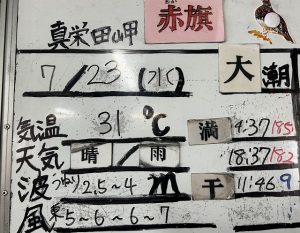 真栄田岬 赤旗
7/23(水) 大潮
気温 31℃ 満 4:37 185
天気 晴/雨 18:37 182
波 うねり 2.5~4m 干 11:46 9
風 5~6~6~7